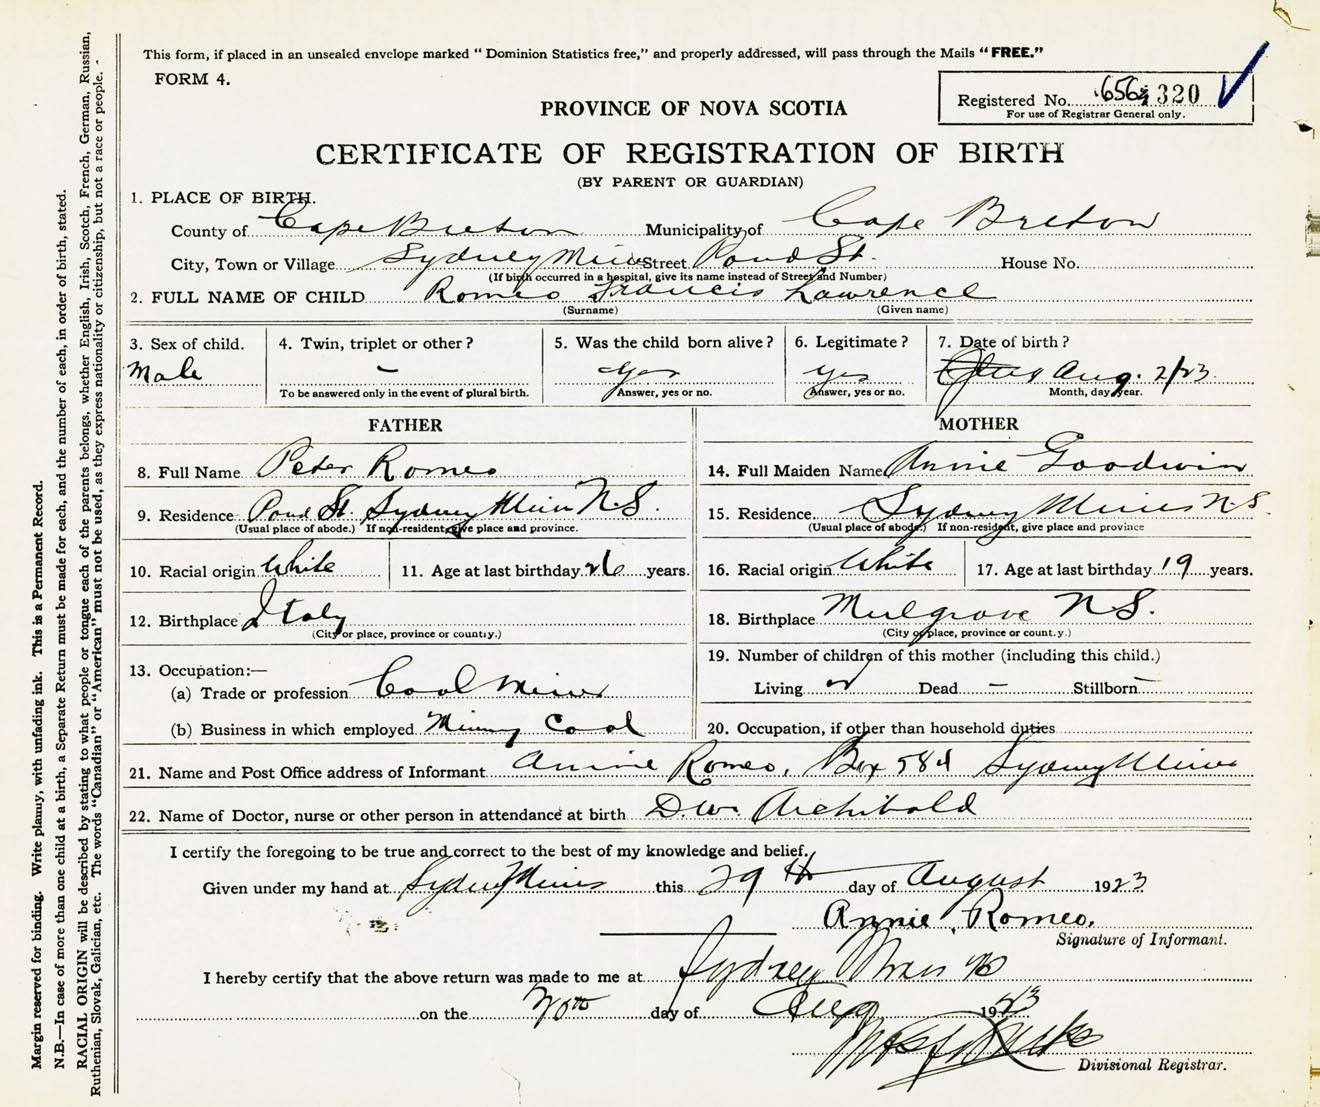 This form, if placed in an unsealed envelope marked "Dominion Statistics free," and properly addressed, will pass through the Mails "FREE."
FORM 4.
Registered No. 320
For use of Registrar General only.
PROVINCE OF NOVA SCOTIA
CERTIFICATE OF REGISTRATION OF BIRTH
(BY PARENT OR GUARDIAN)
1. PLACE OF BIRTH.
County of Cape Breton Municipality of Cape Breton
City, Town or Village Sydney Mines Street Pond St. House No.
(If birth occurred in a hospital, give its name instead of Street and Number)
2. FULL NAME OF CHILD Romeo Francis Lawrence
(Surname) (Given name)
3. Sex of child. 4. Twin, triplet or other? 5. Was the child born alive? 6. Legitimate? 7. Date of birth?
Male - yes yes Aug. 2/23
To be answered only in the event of plural birth. Answer, yes or no. Answer, yes or no. Month, day, year.
FATHER MOTHER
8. Full Name Peter Romeo 14. Full Maiden Name Annie Goodwin
9. Residence Pond St. Sydney Mines N.S. 15. Residence Sydney Mines N.S.
(Usual place of abode.) If non-resident, give place and province. (Usual place of abode.) If non-resident, give place and province
10. Racial origin White 11. Age at last birthday 26 years. 16. Racial origin White 17. Age at last birthday 19 years.
12. Birthplace Italy 18. Birthplace Mulgrave N.S.
(City or place, province or country.) (City or place, province or country.)
13. Occupation:— 19. Number of children of this mother (including this child.)
(a) Trade or profession Coal Miner Living Dead - Stillborn -
(b) Business in which employed Mining Coal 20. Occupation, if other than household duties
21. Name and Post Office address of Informant Annie Romeo, Box 584 Sydney Mines
22. Name of Doctor, nurse or other person in attendance at birth D.W. Archibald
I certify the foregoing to be true and correct to the best of my knowledge and belief.
Given under my hand at Sydney Mines this 29th day of August 1923
Annie Romeo.
Signature of Informant.
I hereby certify that the above return was made to me at Sydney Mines
on the 30th day of Aug 1923
Divisional Registrar.
Margin reserved for binding. Write plainly, with unfading ink. This is a Permanent Record.
N.B.—In case of more than one child at a birth, a Separate Return must be made for each, and the number of each, in order of birth, stated.
RACIAL ORIGIN will be described by stating to what people or tongue each of the parents belongs, whether English, Irish, Scotch, French, German, Russian,
Ruthenian, Slovak, Galician, etc. The words "Canadian" or "American" must not be used, as they express nationality or citizenship, but not a race or people.